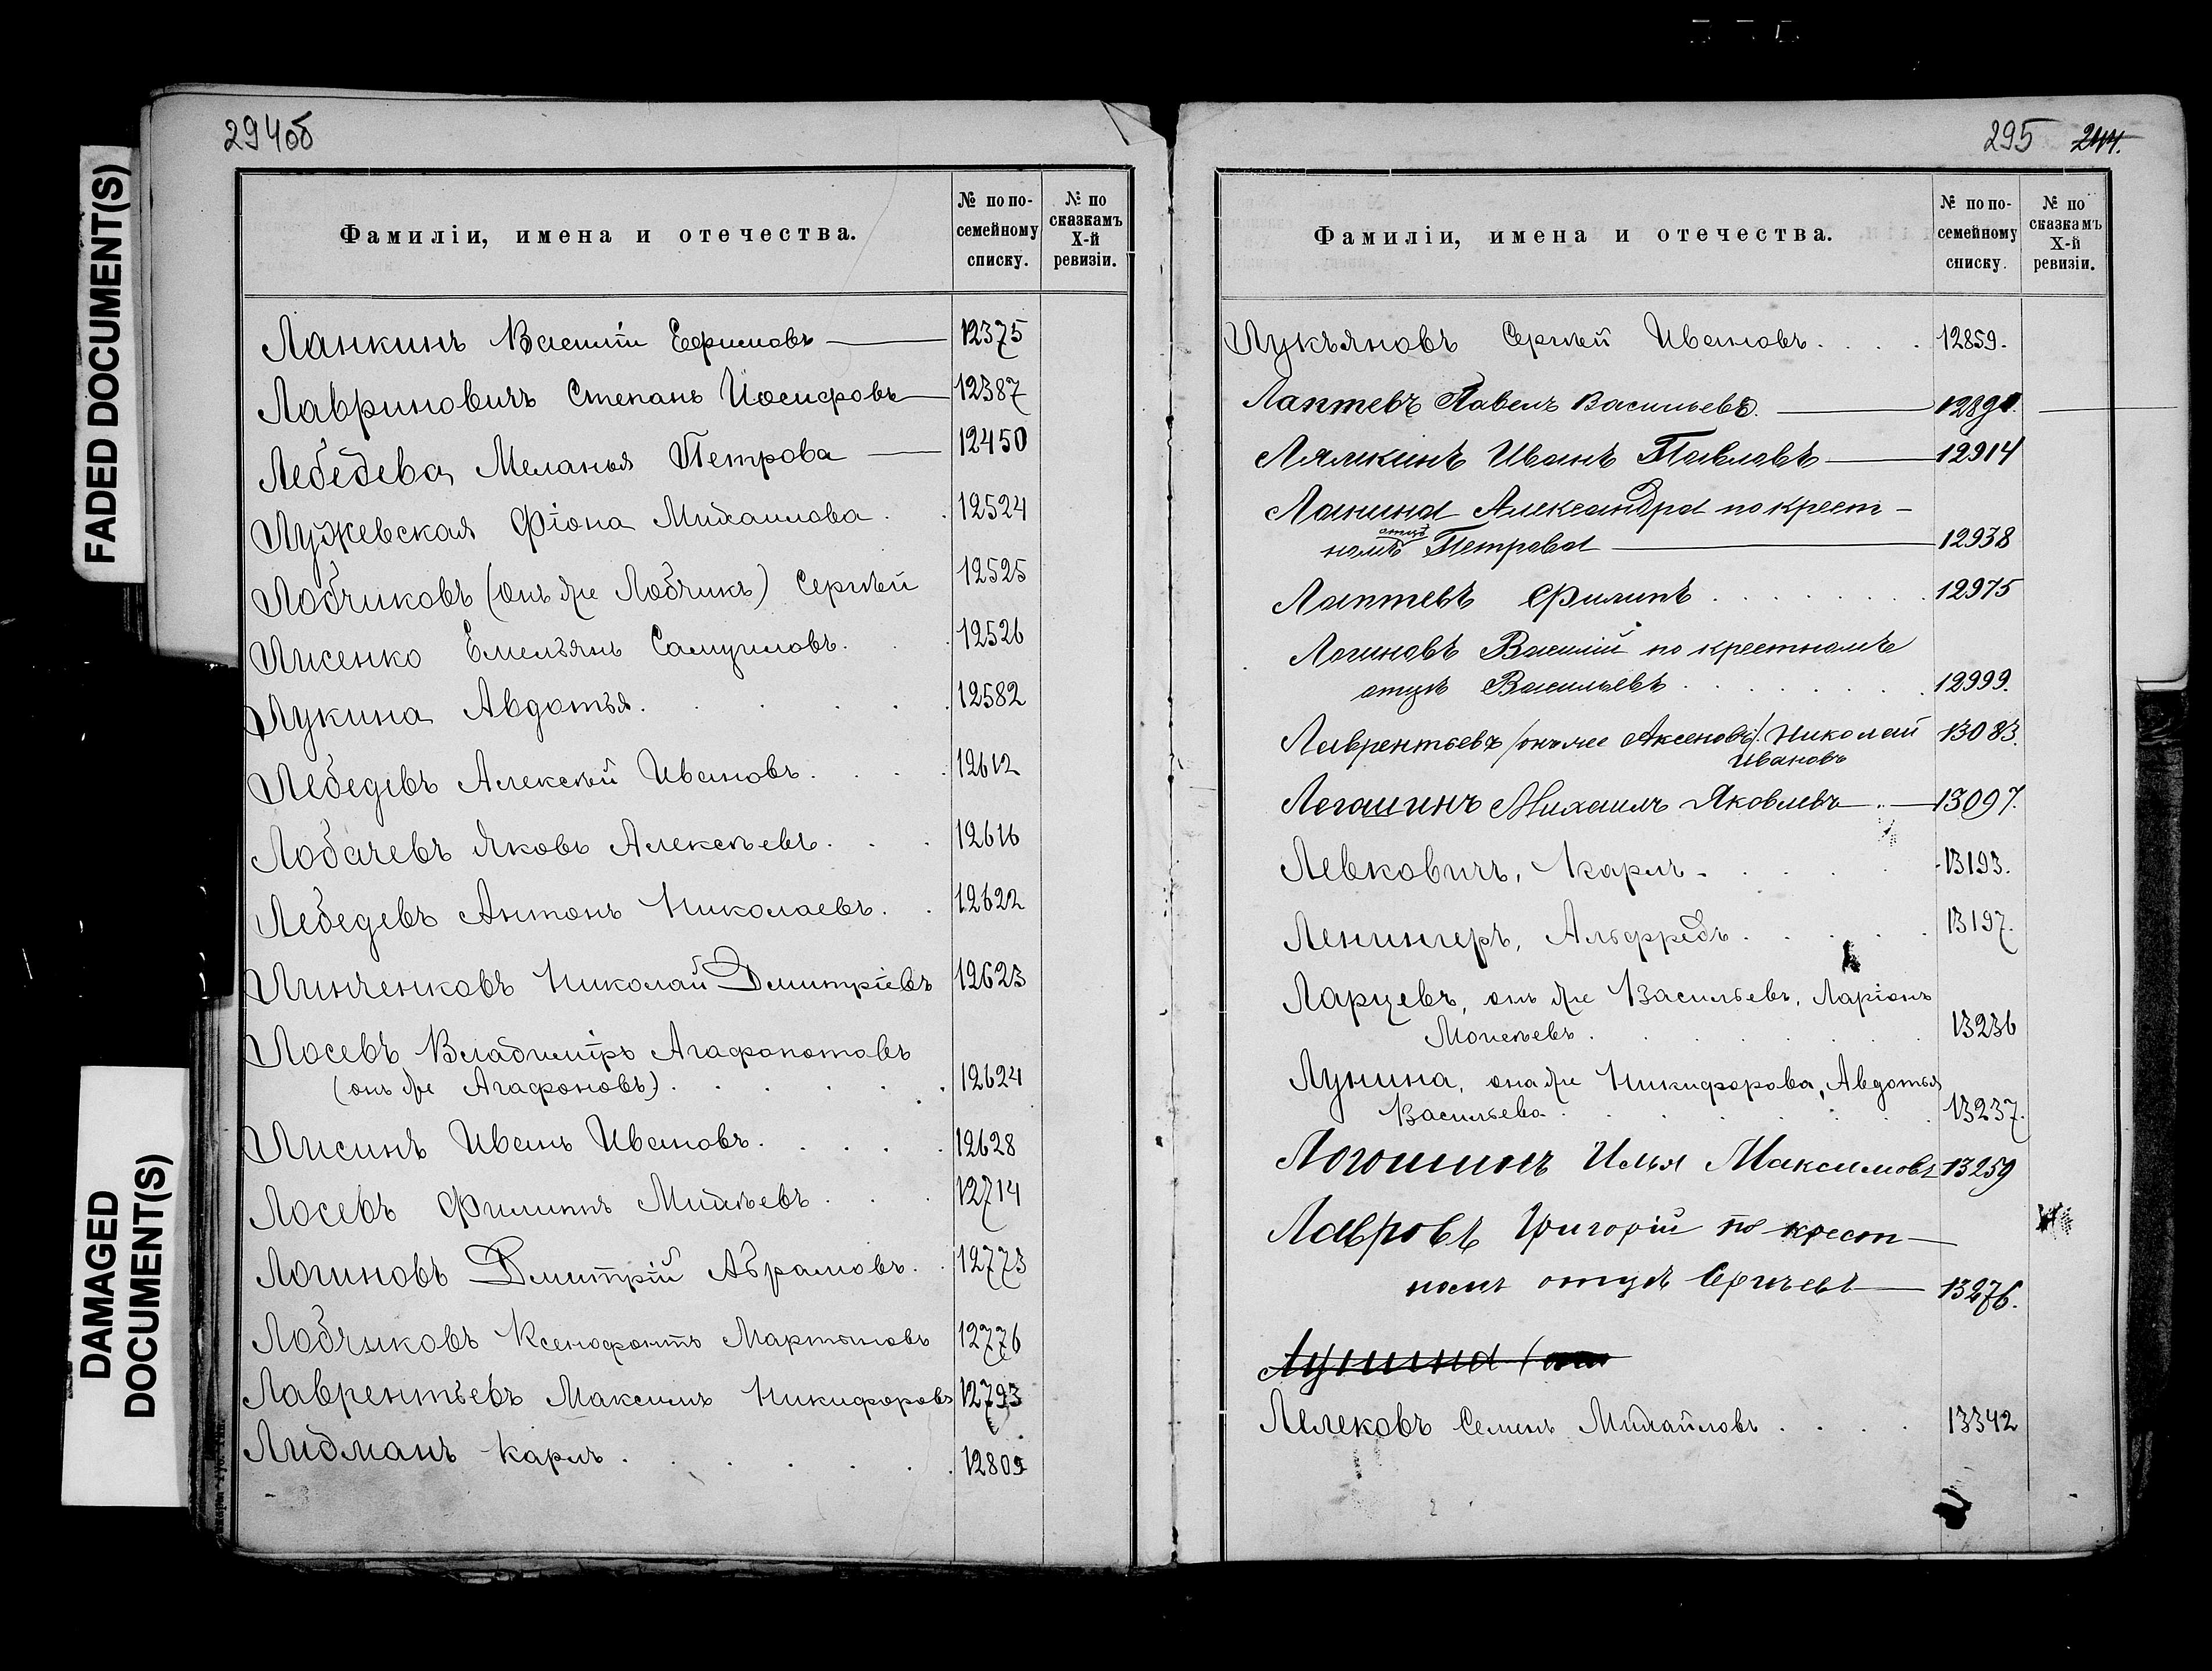 FADED DOCUMENT(S)
DAMAGED
DOCUMENT(S)
294об
Фамиліи, имена и отечества.
№ по по-
семейному
списку.
№ по
сказкамъ
X-й
ревизіи.
Ланкинъ Василій Ефимовъ 12375
Лавриновичъ Степанъ Иосифовъ 12387
Лебедева Меланья Петрова 12450
Лужевская Фіона Михаилова 12524
Лобчиковъ (онъ же Лобчикъ) Сергѣй 12525
Лисенко Емельянъ Самуиловъ 12526
Лукина Авдотья 12582
Лебедевъ Алексѣй Ивановъ 12612
Лобачевъ Яковъ Алексѣевъ 12616
Лебедевъ Антонъ Николаевъ 12622
Линченковъ Николай Дмитріевъ 12623
Лосевъ Владиміръ
(онъ же Агафоновъ) 12624
Лисинъ Иванъ Ивановъ 12628
Лосевъ Филиппъ Михѣевъ 12714
Логиновъ Дмитрій Абрамовъ 12773
Лобчиковъ Ксенофонтъ Мартыновъ 12776
Лаврентьевъ Максимъ Никифоровъ 12793
Лидманъ Карлъ 12809
295 244.
Фамиліи, имена и отечества.
№ по по-
семейному
списку.
№ по
сказкамъ
X-й
ревизіи.
Лукъяновъ Сергѣй Ивановъ 12859.
Лаптевъ Павелъ Васильевъ
Лялькинъ Иванъ Павловъ 12914
Ланина Александра по крест-
отцѣ
номъ Петрова 12938
Лаптевъ Филипъ 12975
Логиновъ Василій по крестномъ
отцѣ Васильевъ 12999.
Лаврентьевъ /онъ же Аксеновъ/ Николай 13083.
Ивановъ
Логашинъ Михаилъ Яковлевъ 13097.
Левковичъ, Карлъ 13193.
Ленингеръ, Альфредъ 13197.
Ларцевъ, онъ же Васильевъ, Ларіонъ
Моисѣевъ 13236
Лунина, она же Никифорова, Авдотья
Васильева 13237.
Логошинъ Илья Максимовъ 13259
Лавровъ Григорій по крест-
номъ отцѣ Сергѣевъ 13276.
Лунина (она
Лелековъ Семенъ Михайловъ 13342